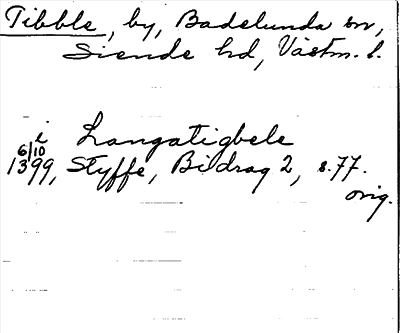 Tibble, by, Badelunda sn,
Siende hd, Västm. l.
i Langatigbele
6/10 1399, Styffe, Bidrag 2, s. 77.
orig.